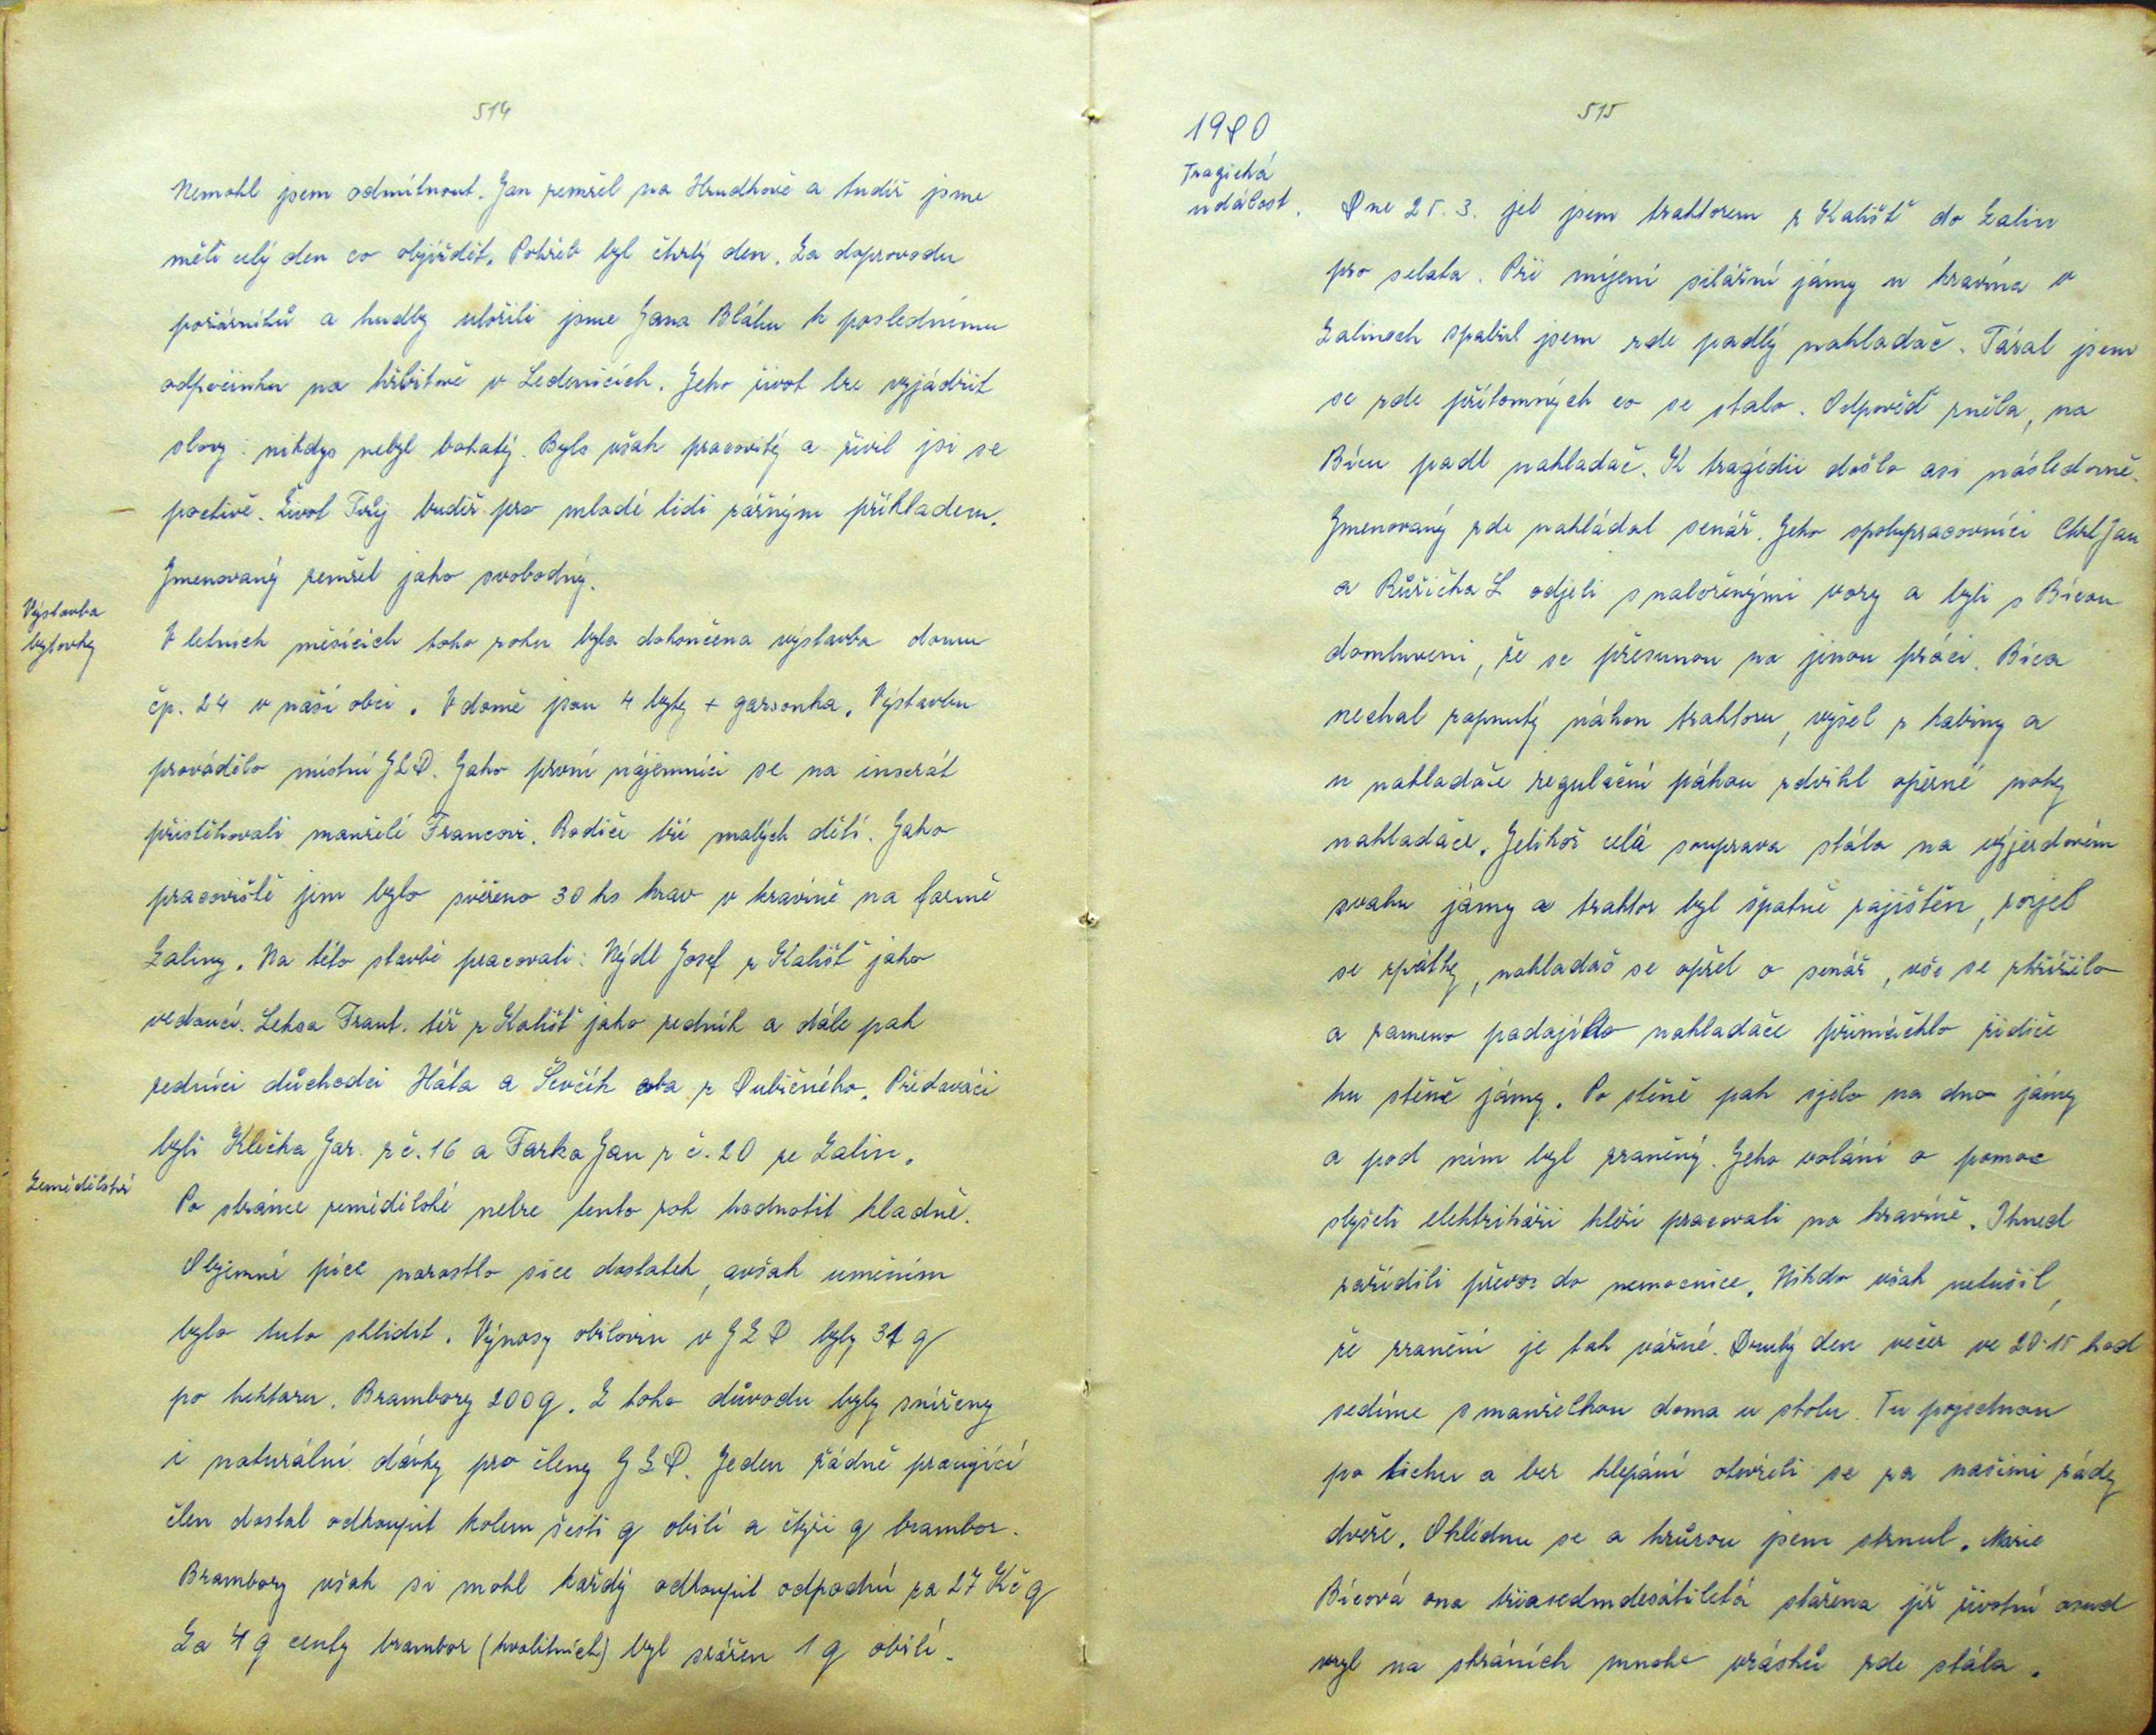 514
Nemohl jsem odmítnout. Jan zemřel na Hrudkově a tudíž jsme
měli celý den co objíždět. Pohřeb byl čtvrtý den. Za doprovodu
požárníků a hudby uložili jsme Jana Bláhu k poslednímu
odpočinku na hřbitově v Ledenicích. Jeho život lze vyjádřit
slovy: nikdys nebyl bohatý. Byls však pracovitý a živil jsi se
poctivě. Život Tvůj budiž pro mladé lidi zářným příkladem.
Jmenovaný zemřel jako svobodný.
Výstavba
bytovky
V letních měsících toho roku byla dokončena výstavba domu
čp. 24 v naší obci. V domě jsou 4 byty + garsonka. Výstavbu
provádělo místní JZD. Jako první nájemníci se na inzerát
přistěhovali manželé Francovi. Rodiče tří malých dětí. Jako
pracoviště jim bylo svěřeno 30 ks krav v kravíně na farmě
Zaliny. Na této stavbě pracovali: Nýdl Josef z Kališť jako
vedoucí. Leksa Frant. též z Kališť jako zedník a dále pak
zedníci důchodci Hála a Ševčík oba z Dubičného. Přidavači
byli Klečka Jar. z č. 16 a Farka Jan z č. 20 ze Zalin.
Zemědělství
Po stránce zemědělské nelze tento rok hodnotit kladně.
Objemné píce narostlo sice dostatek, avšak uměním
bylo tuto sklidit. Výnosy obilovin v JZD byly 31 q
po hektaru. Brambory 200 q. Z toho důvodu byly sníženy
i naturální dávky pro členy JZD. Jeden řádně pracující
člen dostal odkoupit kolem šesti q obilí a čtyři q brambor.
Brambory však si mohl každý odkoupit odpadní za 27 Kč q
Za 4 q centy brambor (kvalitních) byl srážen 1 q obilí.
515
1980
Tragická
událost.
Dne 25. 3. jel jsem traktorem z Kališť do Zalin
pro selata. Při míjení silážní jámy u kravína v
Zalinech spatřil jsem zde padlý nakladač. Tázal jsem
se zde přítomných co se stalo. Odpověď zněla, na
Bícu padl nakladač. K tragédii došlo asi následovně.
Jmenovaný zde nakládal senáž. Jeho spolupracovníci Chrl Jan
a Růžička L odjeli s naloženými vozy a byli s Bícou
domluveni, že se přesunou na jinou práci. Bíca
nechal zapnutý náhon traktoru, vyšel z kabiny a
u nakladače regulační pákou zdvihl opěrné nohy
nakladače. Jelikož celá souprava stála na výjezdovém
svahu jámy a traktor byl špatně zajištěn, rozjel
se zpátky, nakladač se opřel o senáž, vše se zkřížilo
a rameno padajího nakladače přimáčklo řidiče
ku stěně jámy. Po stěně pak sjelo na dno jámy
a pod ním byl zraněný. Jeho volání o pomoc
slyšeli elektrikáři kteří pracovali na kravíně. Ihned
zařídili převoz do nemocnice. Nikdo však netušil,
že zranění je tak vážné. Druhý den večer ve 20.15 hod
sedíme s manželkou doma u stolu. Tu pojednou
po tichu a bez klepání otevřeli se za našimi zády
dveře. Ohlédnu se a hrůzou jsem strnul. Marie
Bícová ona třiasedmdesátiletá stařena jíž životní osud
vryl na skráních mnoho vrásků zde stála.